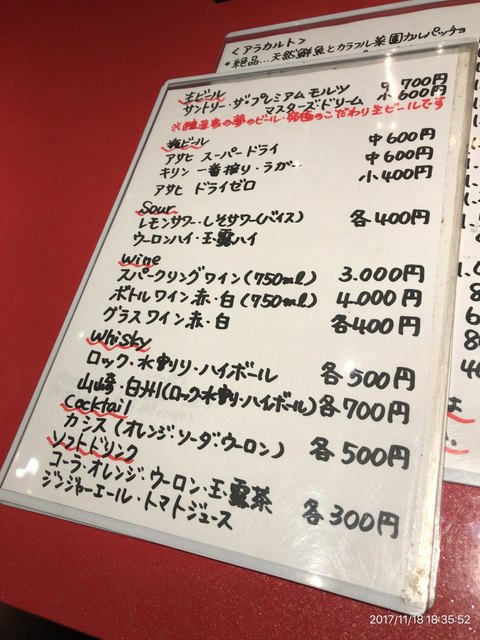 <アラカルト>
*絶品…天然鮮魚とカラフル菜園カルパッチョ
生ビール
サントリー・ザ・プレミアム モルツ 中 700円
マスターズドリーム 小 600円
※醸造家の夢のビール・究極のこだわり生ビールです
瓶ビール
アサヒ スーパードライ 中600円
キリン 一番搾り・ラガー 中600円
アサヒ ドライゼロ 小400円
Sour
レモンサワー・しそサワー(バイス) 各400円
ウーロンハイ・玉露ハイ
Wine
スパークリングワイン(750ml) 3.000円
ボトルワイン赤・白(750ml) 4.000円
グラスワイン赤・白 各400円
Whisky
ロック・水割り・ハイボール 各500円
山崎・白州(ロック・水割り・ハイボール) 各700円
Cocktail
カシス(オレンジ・ソーダ・ウーロン) 各500円
ソフトドリンク
コーラ・オレンジ・ウーロン・玉露茶
ジンジャーエール・トマトジュース 各300円
2017/11/18 18:35:52